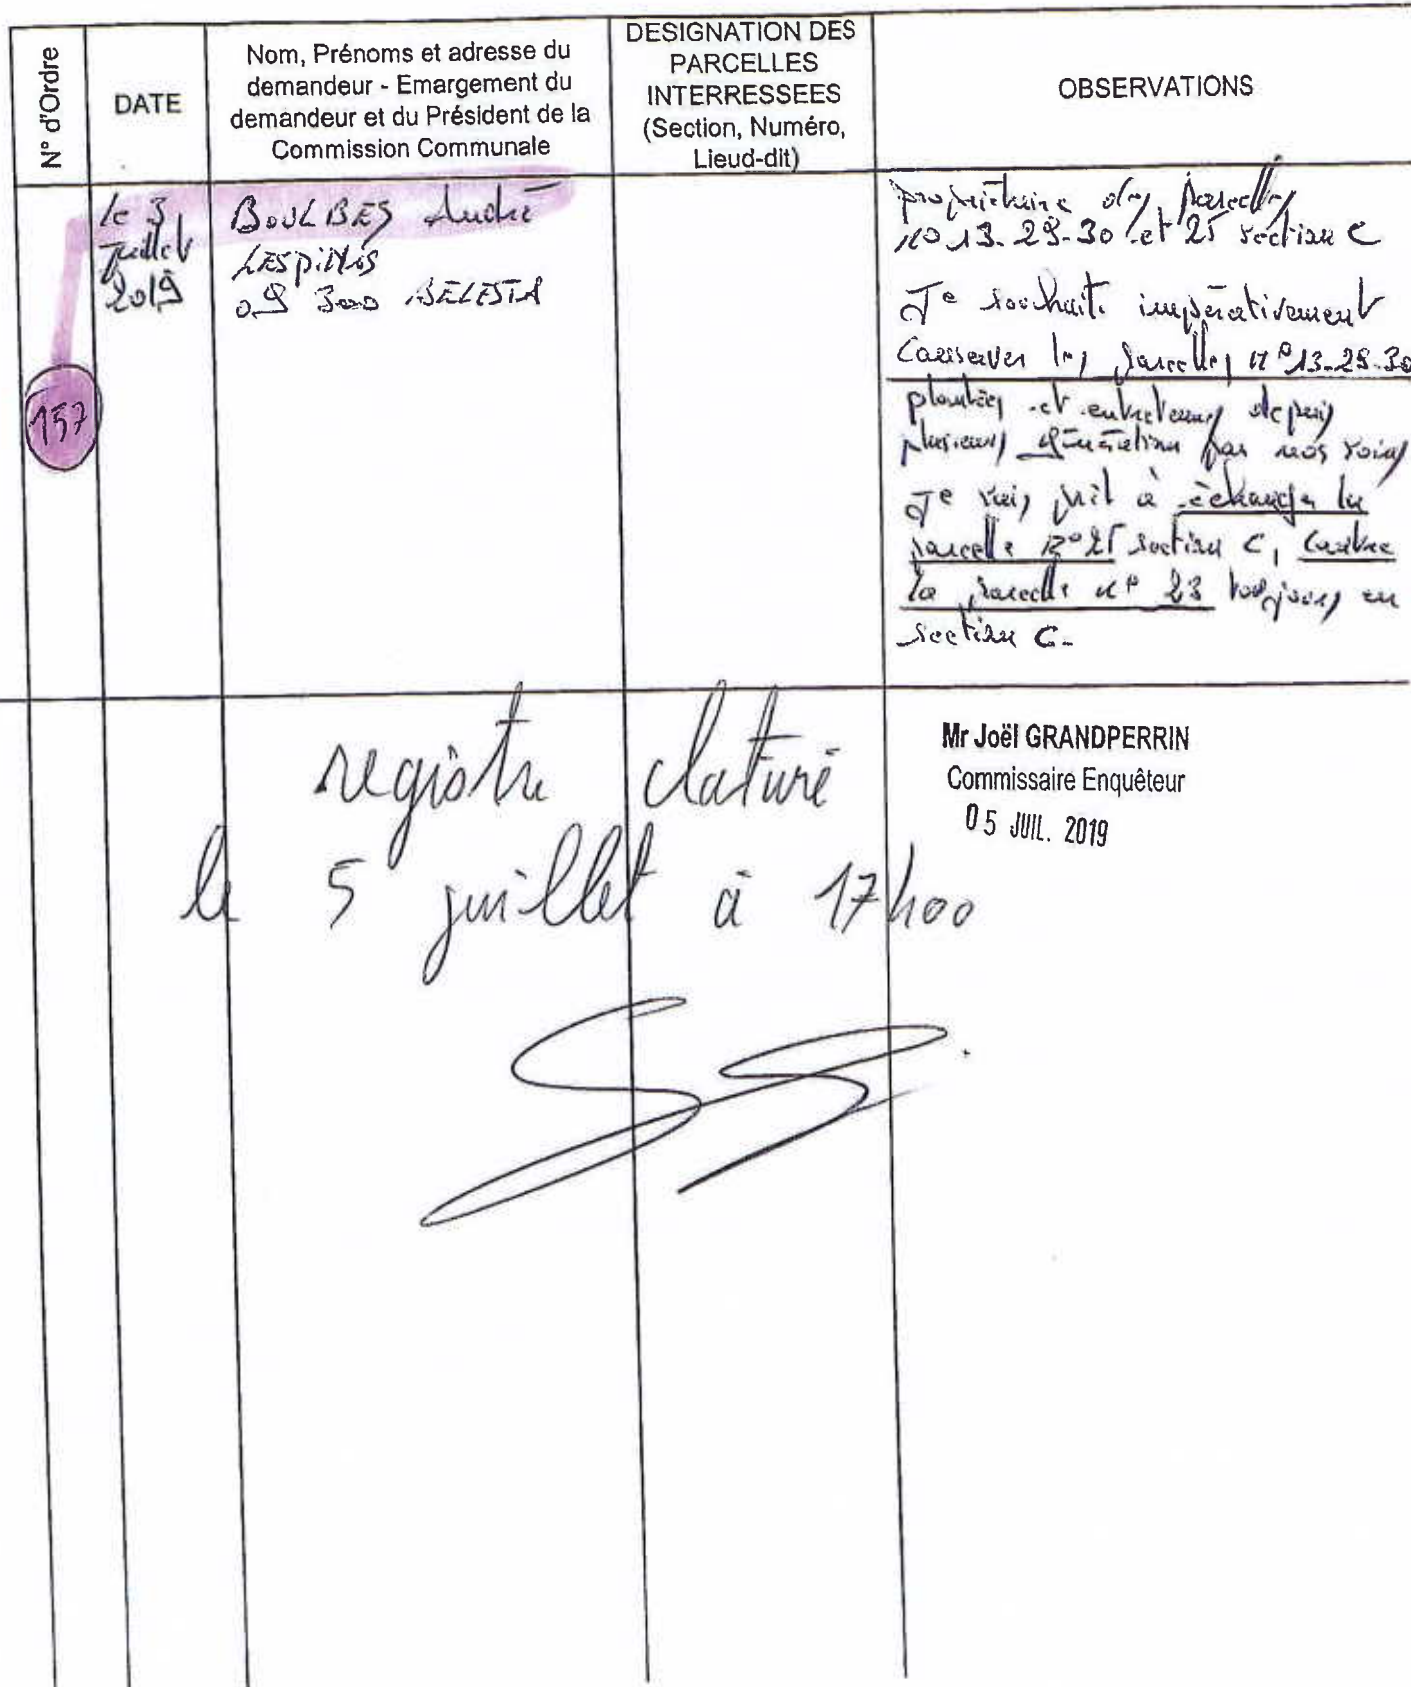 N° d'Ordre
DATE
Nom, Prénoms et adresse du
demandeur - Emargement du
demandeur et du Président de la
Commission Communale
DESIGNATION DES
PARCELLES
INTERRESSEES
(Section, Numéro,
Lieud-dit)
OBSERVATIONS
157
le 3
juillet
2019
BOULBES André
LESPINAS
09 300 BELESTA
propriétaire des parcelles
no 13-29-30 et 25 section C
Je souhaite impérativement
conserver les parcelles n° 13-29-30
plantées et entretenues depuis
plusieurs générations par nos soins
Je suis prêt à échanger la
parcelle n° 25 section C, contre
la parcelle n° 23 toujours en
section C.
registre cloturé
le 5 juillet à 17h00
Mr Joël GRANDPERRIN
Commissaire Enquêteur
05 JUIL. 2019